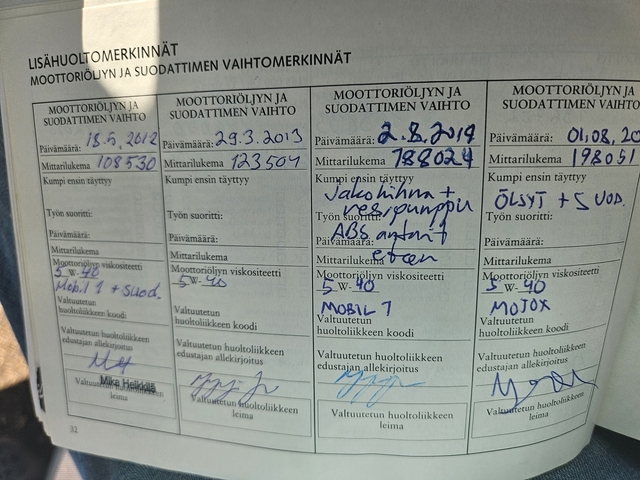 LISÄHUOLTOMERKINNÄT
MOOTTORIÖLJYN JA SUODATTIMEN VAIHTOMERKINNÄT
MOOTTORIÖLJYN JA
SUODATTIMEN VAIHTO
Päivämäärä: 18.5.2012
Mittarilukema 108530
Kumpi ensin täyttyy
Työn suoritti:
Päivämäärä:
Mittarilukema
Moottoriöljyn viskositeetti
5 W-40
Mobil 1 + suod.
Valtuutetun
huoltoliikkeen koodi
Valtuutetun huoltoliikkeen
edustajan allekirjoitus
Mika Heikkilä
Valtuutetun huoltoliikkeen
leima
MOOTTORIÖLJYN JA
SUODATTIMEN VAIHTO
Päivämäärä: 29.3.2013
Mittarilukema 123504
Kumpi ensin täyttyy
Työn suoritti:
Päivämäärä:
Mittarilukema
Moottoriöljyn viskositeetti
5 W-40
Valtuutetun
huoltoliikkeen koodi
Valtuutetun huoltoliikkeen
edustajan allekirjoitus
Valtuutetun huoltoliikkeen
leima
MOOTTORIÖLJYN JA
SUODATTIMEN VAIHTO
Päivämäärä: 2.8.2019
Mittarilukema 188024
Kumpi ensin täyttyy
Jakohihna +
vesipumppu
Työn suoritti:
ABS anturit
Päivämäärä:
eteen
Mittarilukema
Moottoriöljyn viskositeetti
5 W-40
MOBIL 1
Valtuutetun
huoltoliikkeen koodi
Valtuutetun huoltoliikkeen
edustajan allekirjoitus
Valtuutetun huoltoliikkeen
leima
MOOTTORIÖLJYN JA
SUODATTIMEN VAIHTO
Päivämäärä: 01.08.20
Mittarilukema 198051
Kumpi ensin täyttyy
ÖLJYT + S UOD.
Työn suoritti:
Päivämäärä:
Mittarilukema
Moottoriöljyn viskositeetti
5 W-40
MOTOX
Valtuutetun
huoltoliikkeen koodi
Valtuutetun huoltoliikkeen
edustajan allekirjoitus
Valtuutetun huoltoliikkeen
leima
32